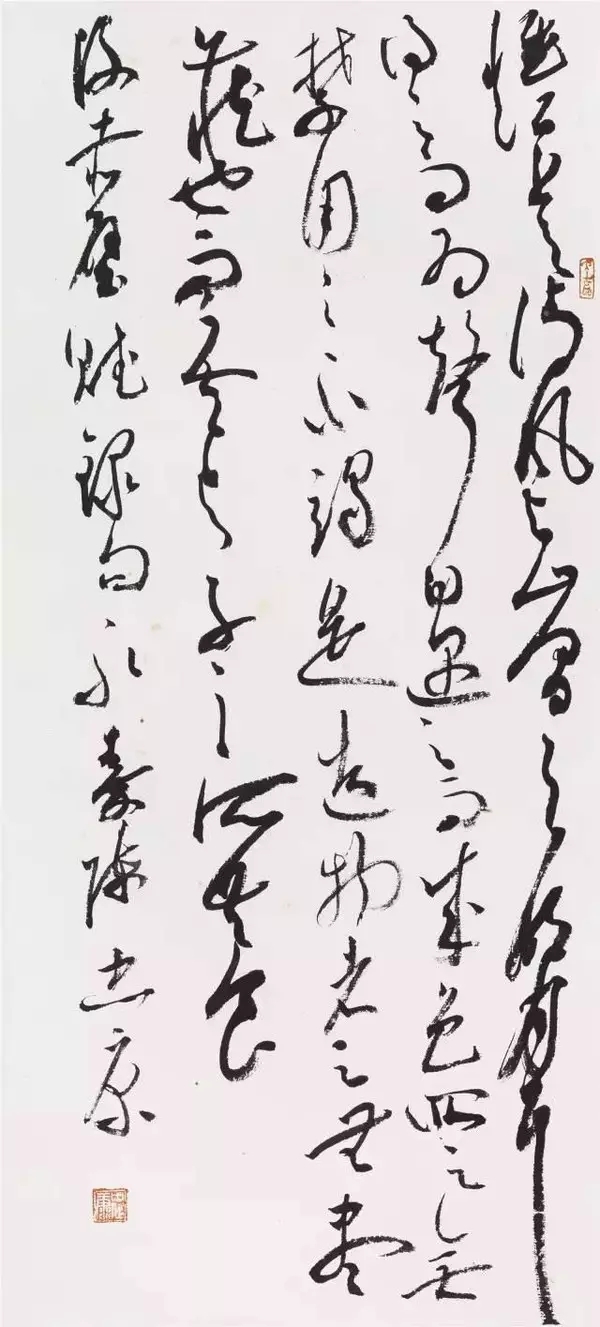 惟江上之清風與山間之明月耳
得之而為聲目遇之而成色取之無
禁用之不竭是造物者之無盡
藏也而吾與子之所共食
後赤壁賦錄句永嘉陳忠康